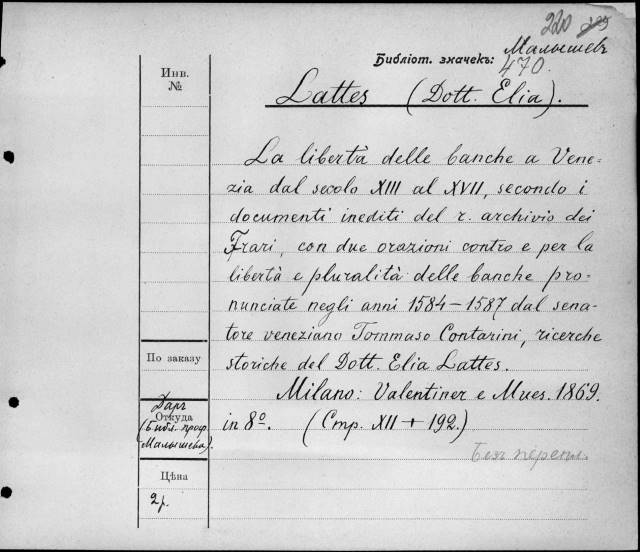 220
Малышев
Библіот. значекъ:
470.
Инв.
№
Lattes (Dott. Elia).
La libertà delle banche a Vene=
zia dal secolo XIII al XVII, secondo i
documenti inediti del r. archivio dei
Frari, con due orazioni contro e per la
libertà e pluralità delle banche pro=
nunciate negli anni 1584-1587 dal sena=
tore veneziano Tommaso Contarini, ricerche
storiche del Dott. Elia Lattes.
Milano: Valentiner e Mues. 1869.
in 8º. (Стр. XII + 192.)
Безъ перепл.
По заказу
Даръ
Откуда
(Библ. проф.
Малышева).
Цѣна
2 р.